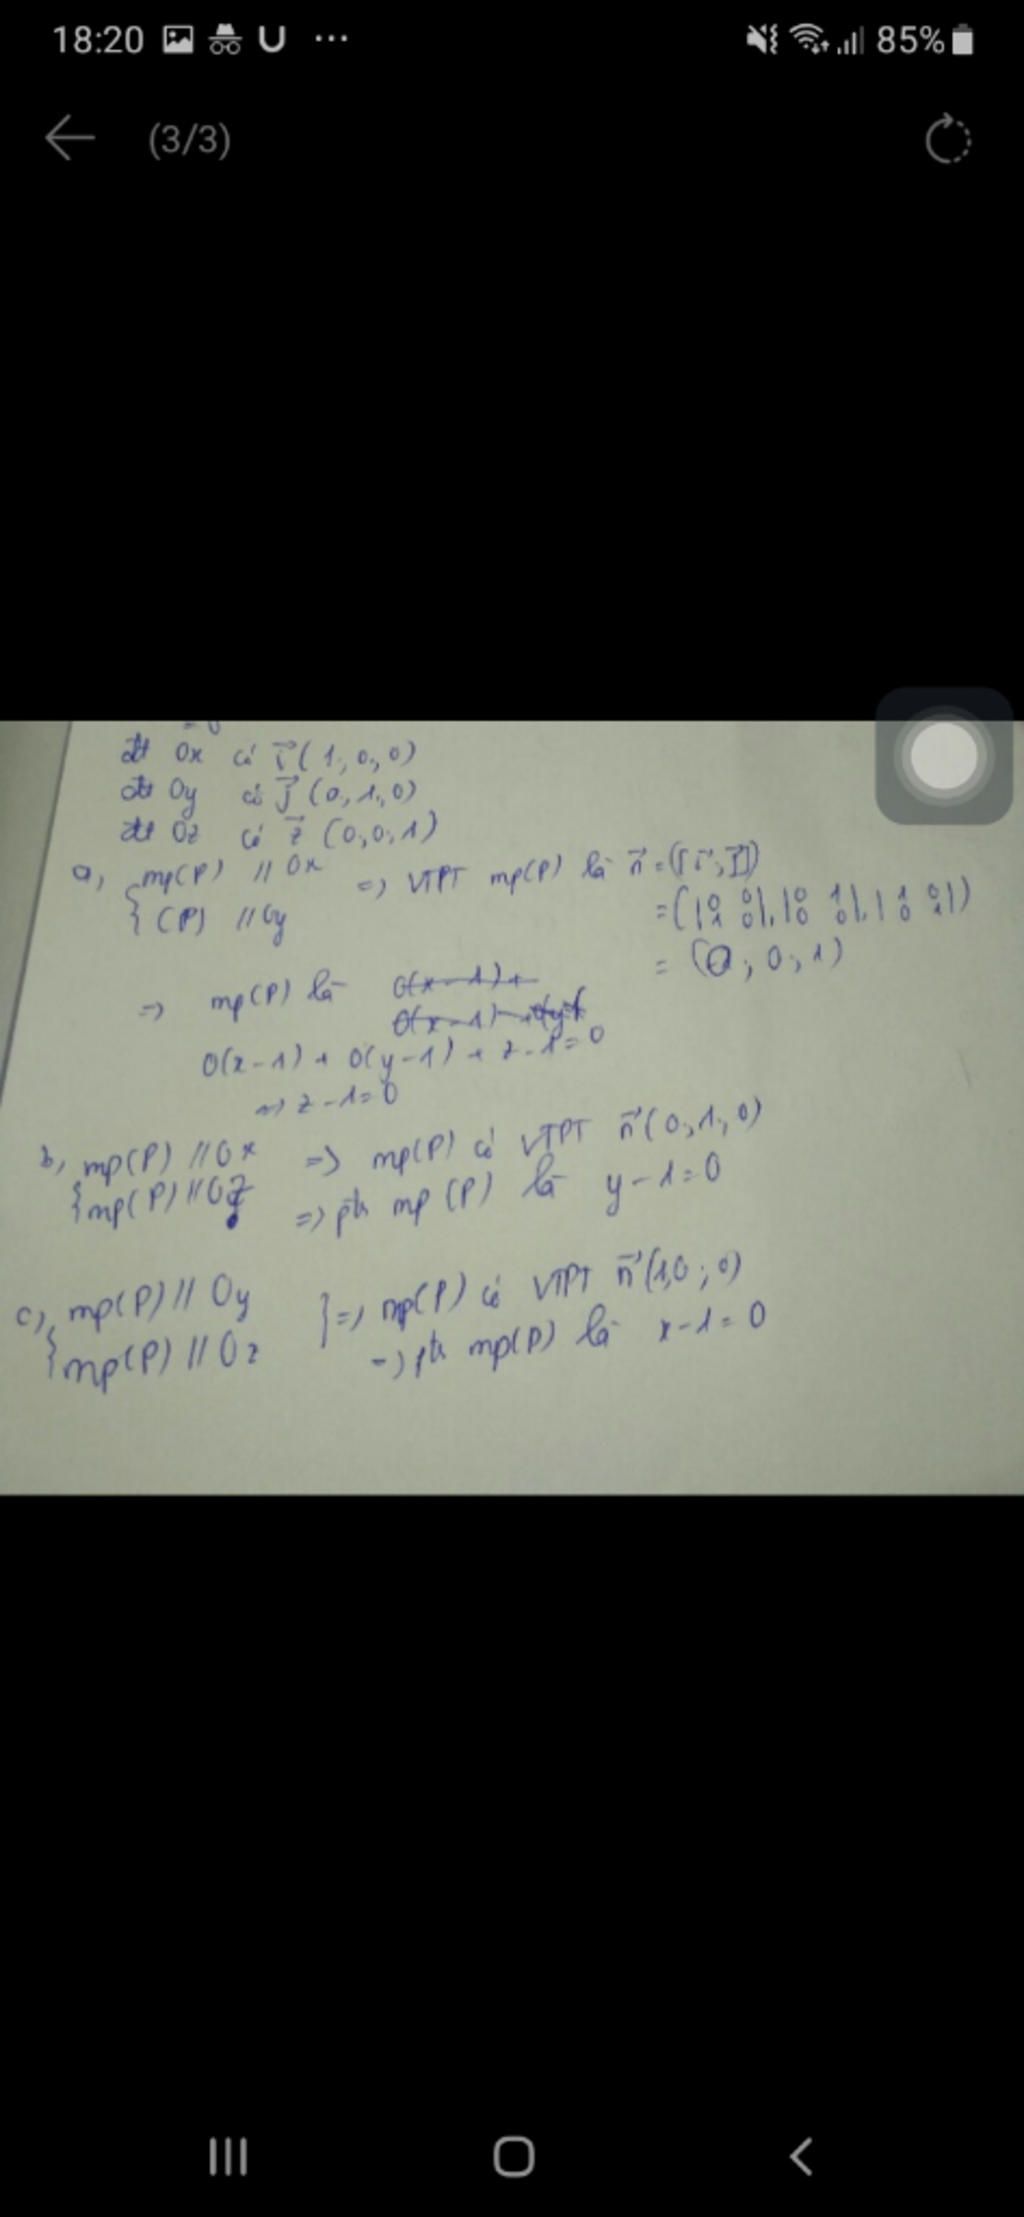 18:20 U ... 85%
(3/3)
đt Ox có i⃗ (1; 0; 0)
đt Oy có j⃗ (0; 1; 0)
đt Oz có z⃗ (0; 0; 1)
a, { mp(P) // Ox
(P) // Oy
=> VTPT mp(P) là n⃗ = ([i⃗; j⃗])
= (|0 0; 1 0|, |0 1; 0 0|, |1 0; 0 1|)
= (0; 0; 1)
=> mp(P) là
0(x-1) + 0(y-1) + z-1=0
=> z-1=0
b, { mp(P) // Ox => mp(P) có VTPT n⃗ (0; 1; 0)
mp(P) // Oz => pth mp (P) là y-1=0
c, { mp(P) // Oy } => mp(P) có VTPT n⃗ (1; 0; 0)
mp(P) // Oz => pth mp(P) là x-1=0